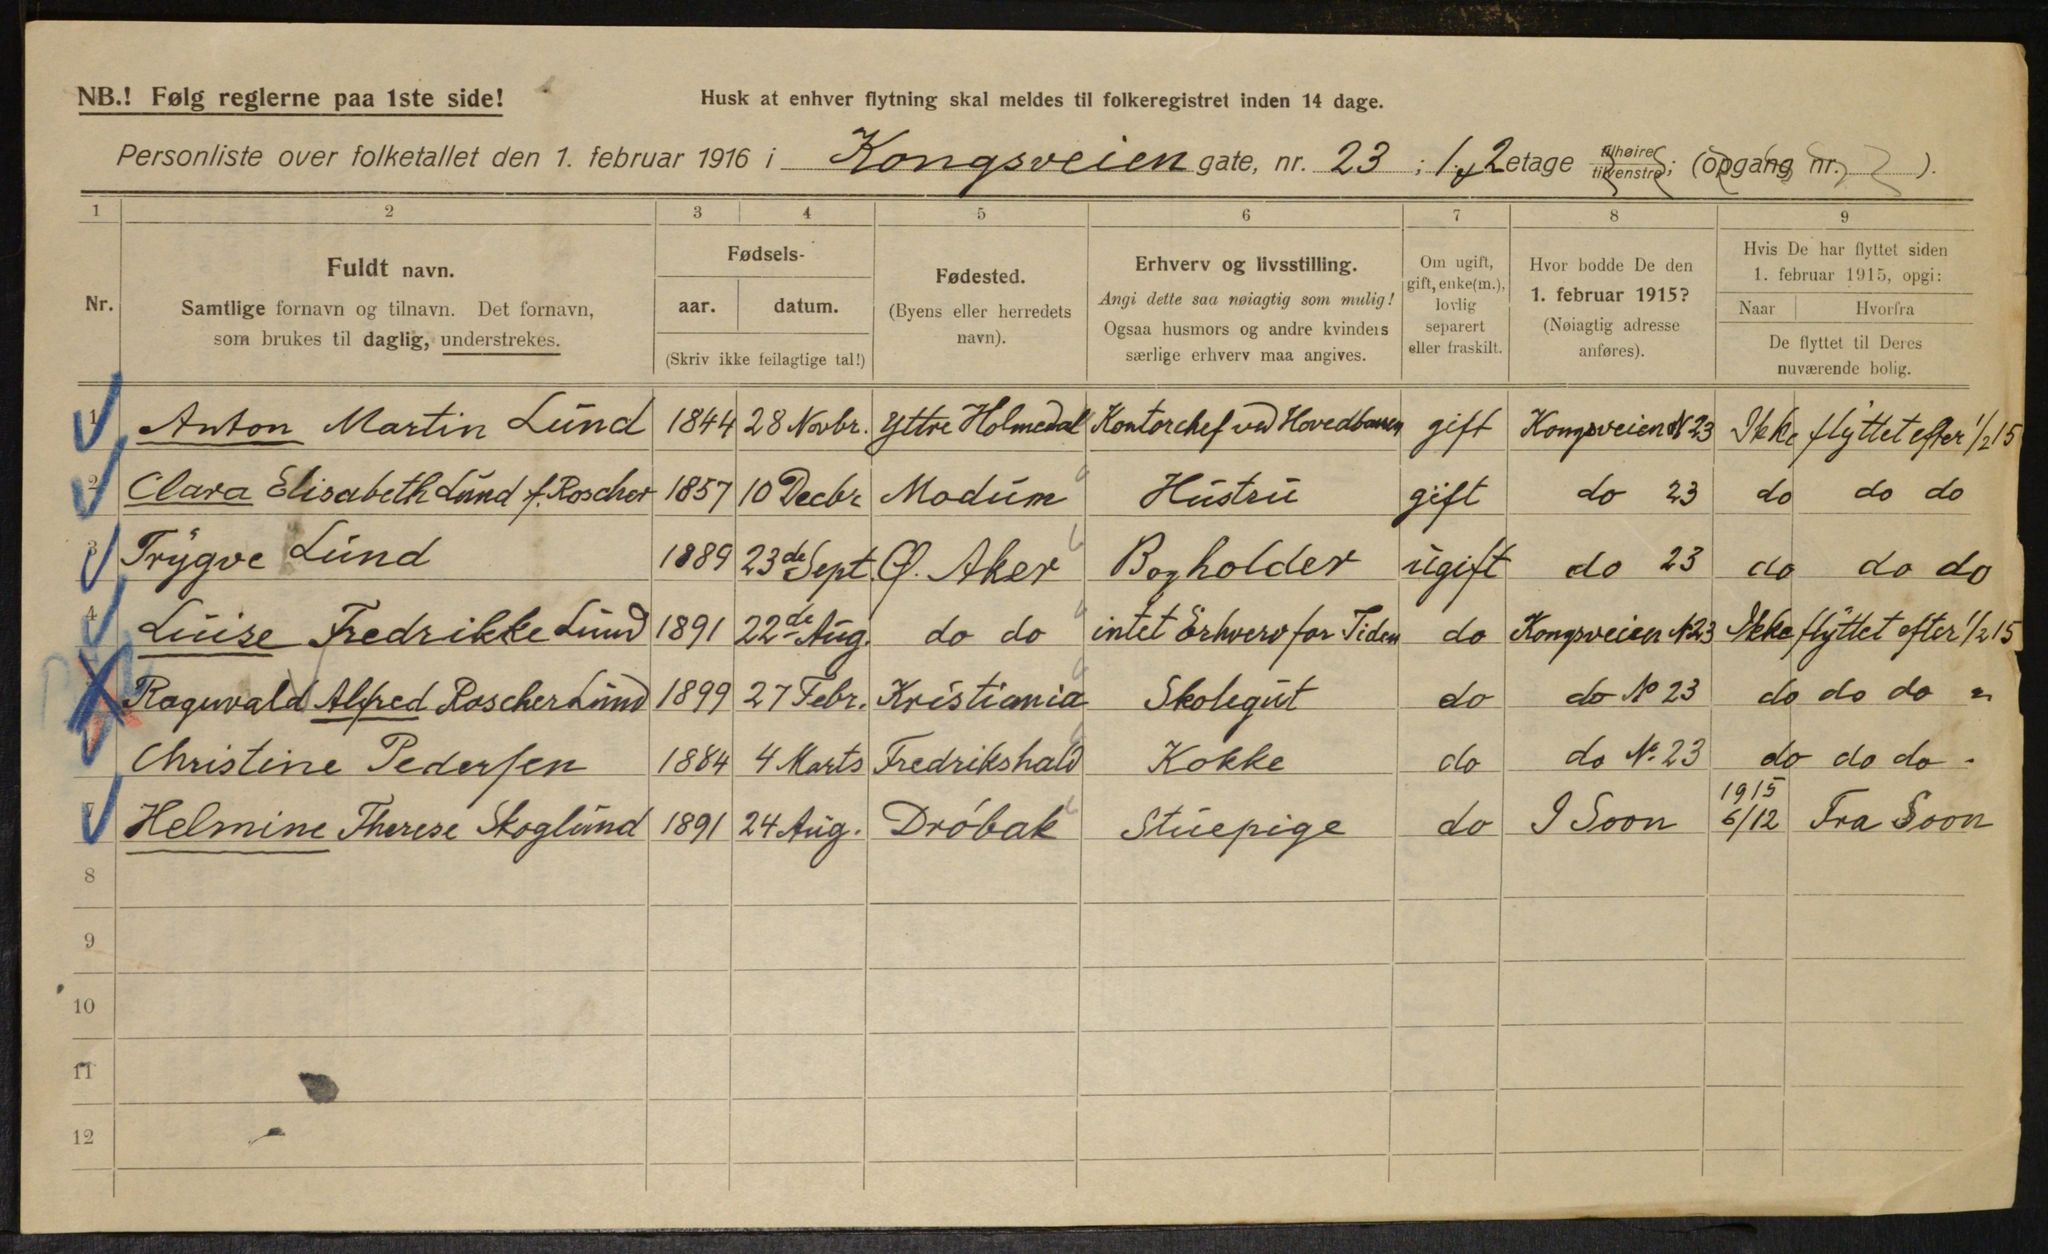 NB.! Følg reglerne paa 1ste side!
Husk at enhver flytning skal meldes til folkeregistret inden 14 dage.
Personliste over folketallet den 1. februar 1916 i Kongsveien gate, nr. 23 ; 1. 2 etage tilhøire tilvenstre; (opgang nr. ).
1 2 3 4 5 6 7 8 9
Nr.
Fuldt navn.
Samtlige fornavn og tilnavn. Det fornavn,
som brukes til daglig, understrekes.
Fødsels-
aar. datum.
(Skriv ikke feilagtige tal!)
Fødested.
(Byens eller herredets
navn).
Erhverv og livsstilling.
Angi dette saa nøiagtig som mulig!
Ogsaa husmors og andre kvinders
særlige erhverv maa angives.
Om ugift,
gift, enke(m.),
lovlig
separert
eller fraskilt.
Hvor bodde De den
1. februar 1915?
(Nøiagtig adresse
anføres).
Hvis De har flyttet siden
1. februar 1915, opgi:
Naar Hvorfra
De flyttet til Deres
nuværende bolig.
1 Anton Martin Lund 1844 28 Novbr. Yttre Holmedal Kontorchef ved Hovedbanen gift Kongsveien N 23 Ikke flyttet efter 1/2 15
2 Clara Elisabeth Lund f. Roscher 1857 10 Decbr Modum Hustru gift do 23 do do do
3 Trygve Lund 1889 23de Sept Ø. Aker Bogholder ugift do 23 do do do
4 Luise Fredrikke Lund 1891 22de Aug. do do intet Erhverv for Tiden do Kongsveien N 23 Ikke flyttet efter 1/2 15
Raguvald Alfred Roscher Lund 1899 27 Febr. Kristiania Skolegut do do No 23 do do do "
Christine Pedersen 1884 4 Marts Fredrikshald Kokke do do No. 23 do do do -
7 Helmine Therese Skoglund 1891 24 Aug. Dröbak Stuepige do I Soon 1915 6/12 Fra Soon
8
9
10
11
12